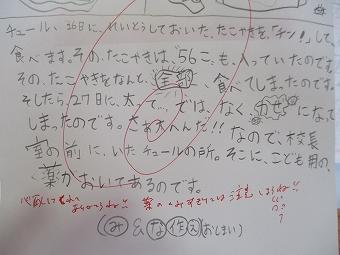 チュール、26日に、れいとうしておいた、たこやきを、「チン!」して、
食べます。その、たこやきは、56こ、も、入っていたのです。
その、たこやきをなんと、全部、食べてしまったのです。
そしたら、27日に、太って…、では、なく、かぜになって
しまったのです。さぁ大へんだ!!なので、校長
室の前に、いたチュールの所。そこに、こども用の、
薬がおいてあるのです。
心配してくれて
ありがとうね!! 薬ののみすぎには注意しようね!!
(み&な作え)(おしまい)